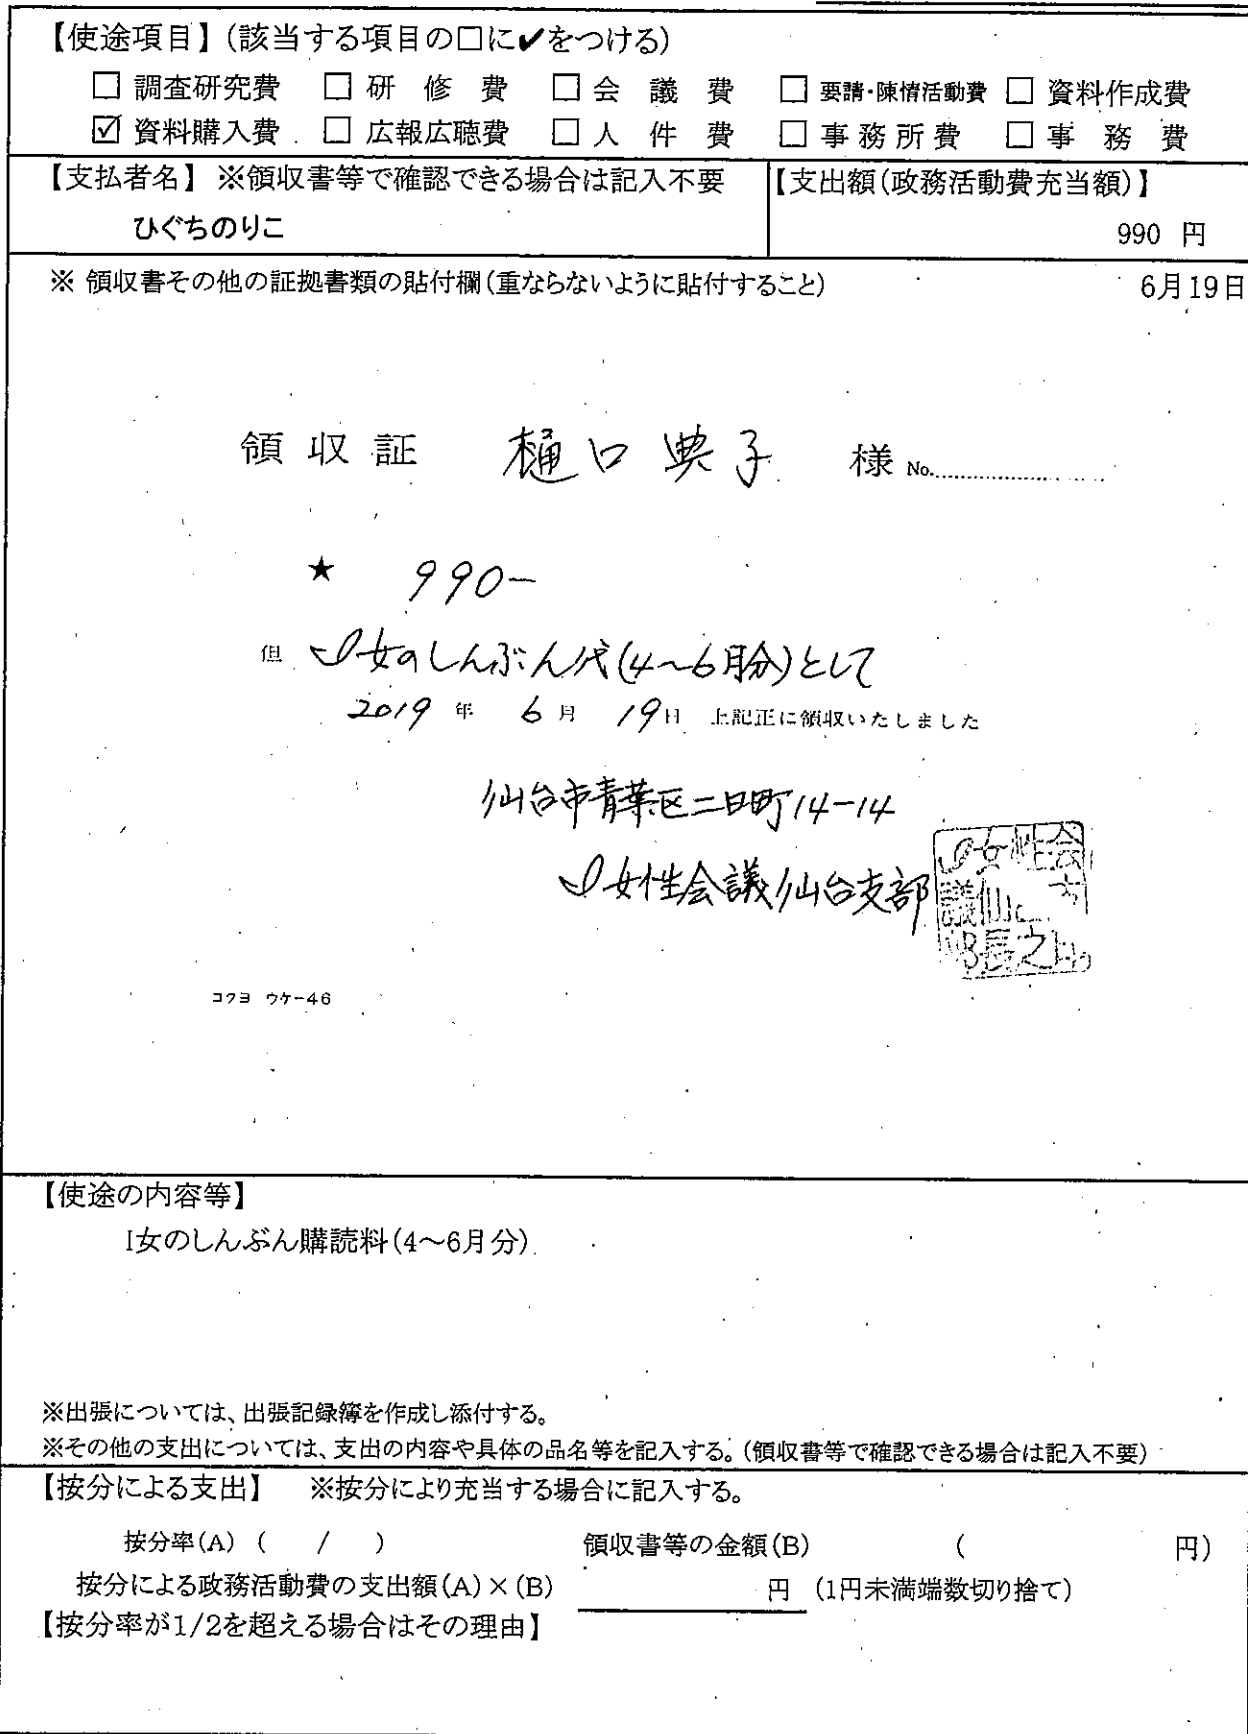 【使途項目】(該当する項目の□に✔をつける)
□ 調査研究費 □ 研修費 □ 会議費 □ 要請・陳情活動費 □ 資料作成費
☑ 資料購入費 □ 広報広聴費 □ 人件費 □ 事務所費 □ 事務費
【支払者名】※領収書等で確認できる場合は記入不要 【支出額(政務活動費充当額)】
ひぐちのりこ 990 円
※ 領収書その他の証拠書類の貼付欄(重ならないように貼付すること) 6月19日
領収証 樋口典子 様 No.
★ 990-
但 I女のしんぶん代(4~6月分)として
2019 年 6 月 19日 上記正に領収いたしました
仙台市青葉区二日町14-14
I女性会議仙台支部
I女性会
議仙
部長之印
コクヨ ウケ-46
【使途の内容等】
I女のしんぶん購読料(4~6月分)
※出張については、出張記録簿を作成し添付する。
※その他の支出については、支出の内容や具体の品名等を記入する。(領収書等で確認できる場合は記入不要)
【按分による支出】 ※按分により充当する場合に記入する。
按分率(A) ( / ) 領収書等の金額(B) ( 円)
按分による政務活動費の支出額(A)×(B) 円 (1円未満端数切り捨て)
【按分率が1/2を超える場合はその理由】